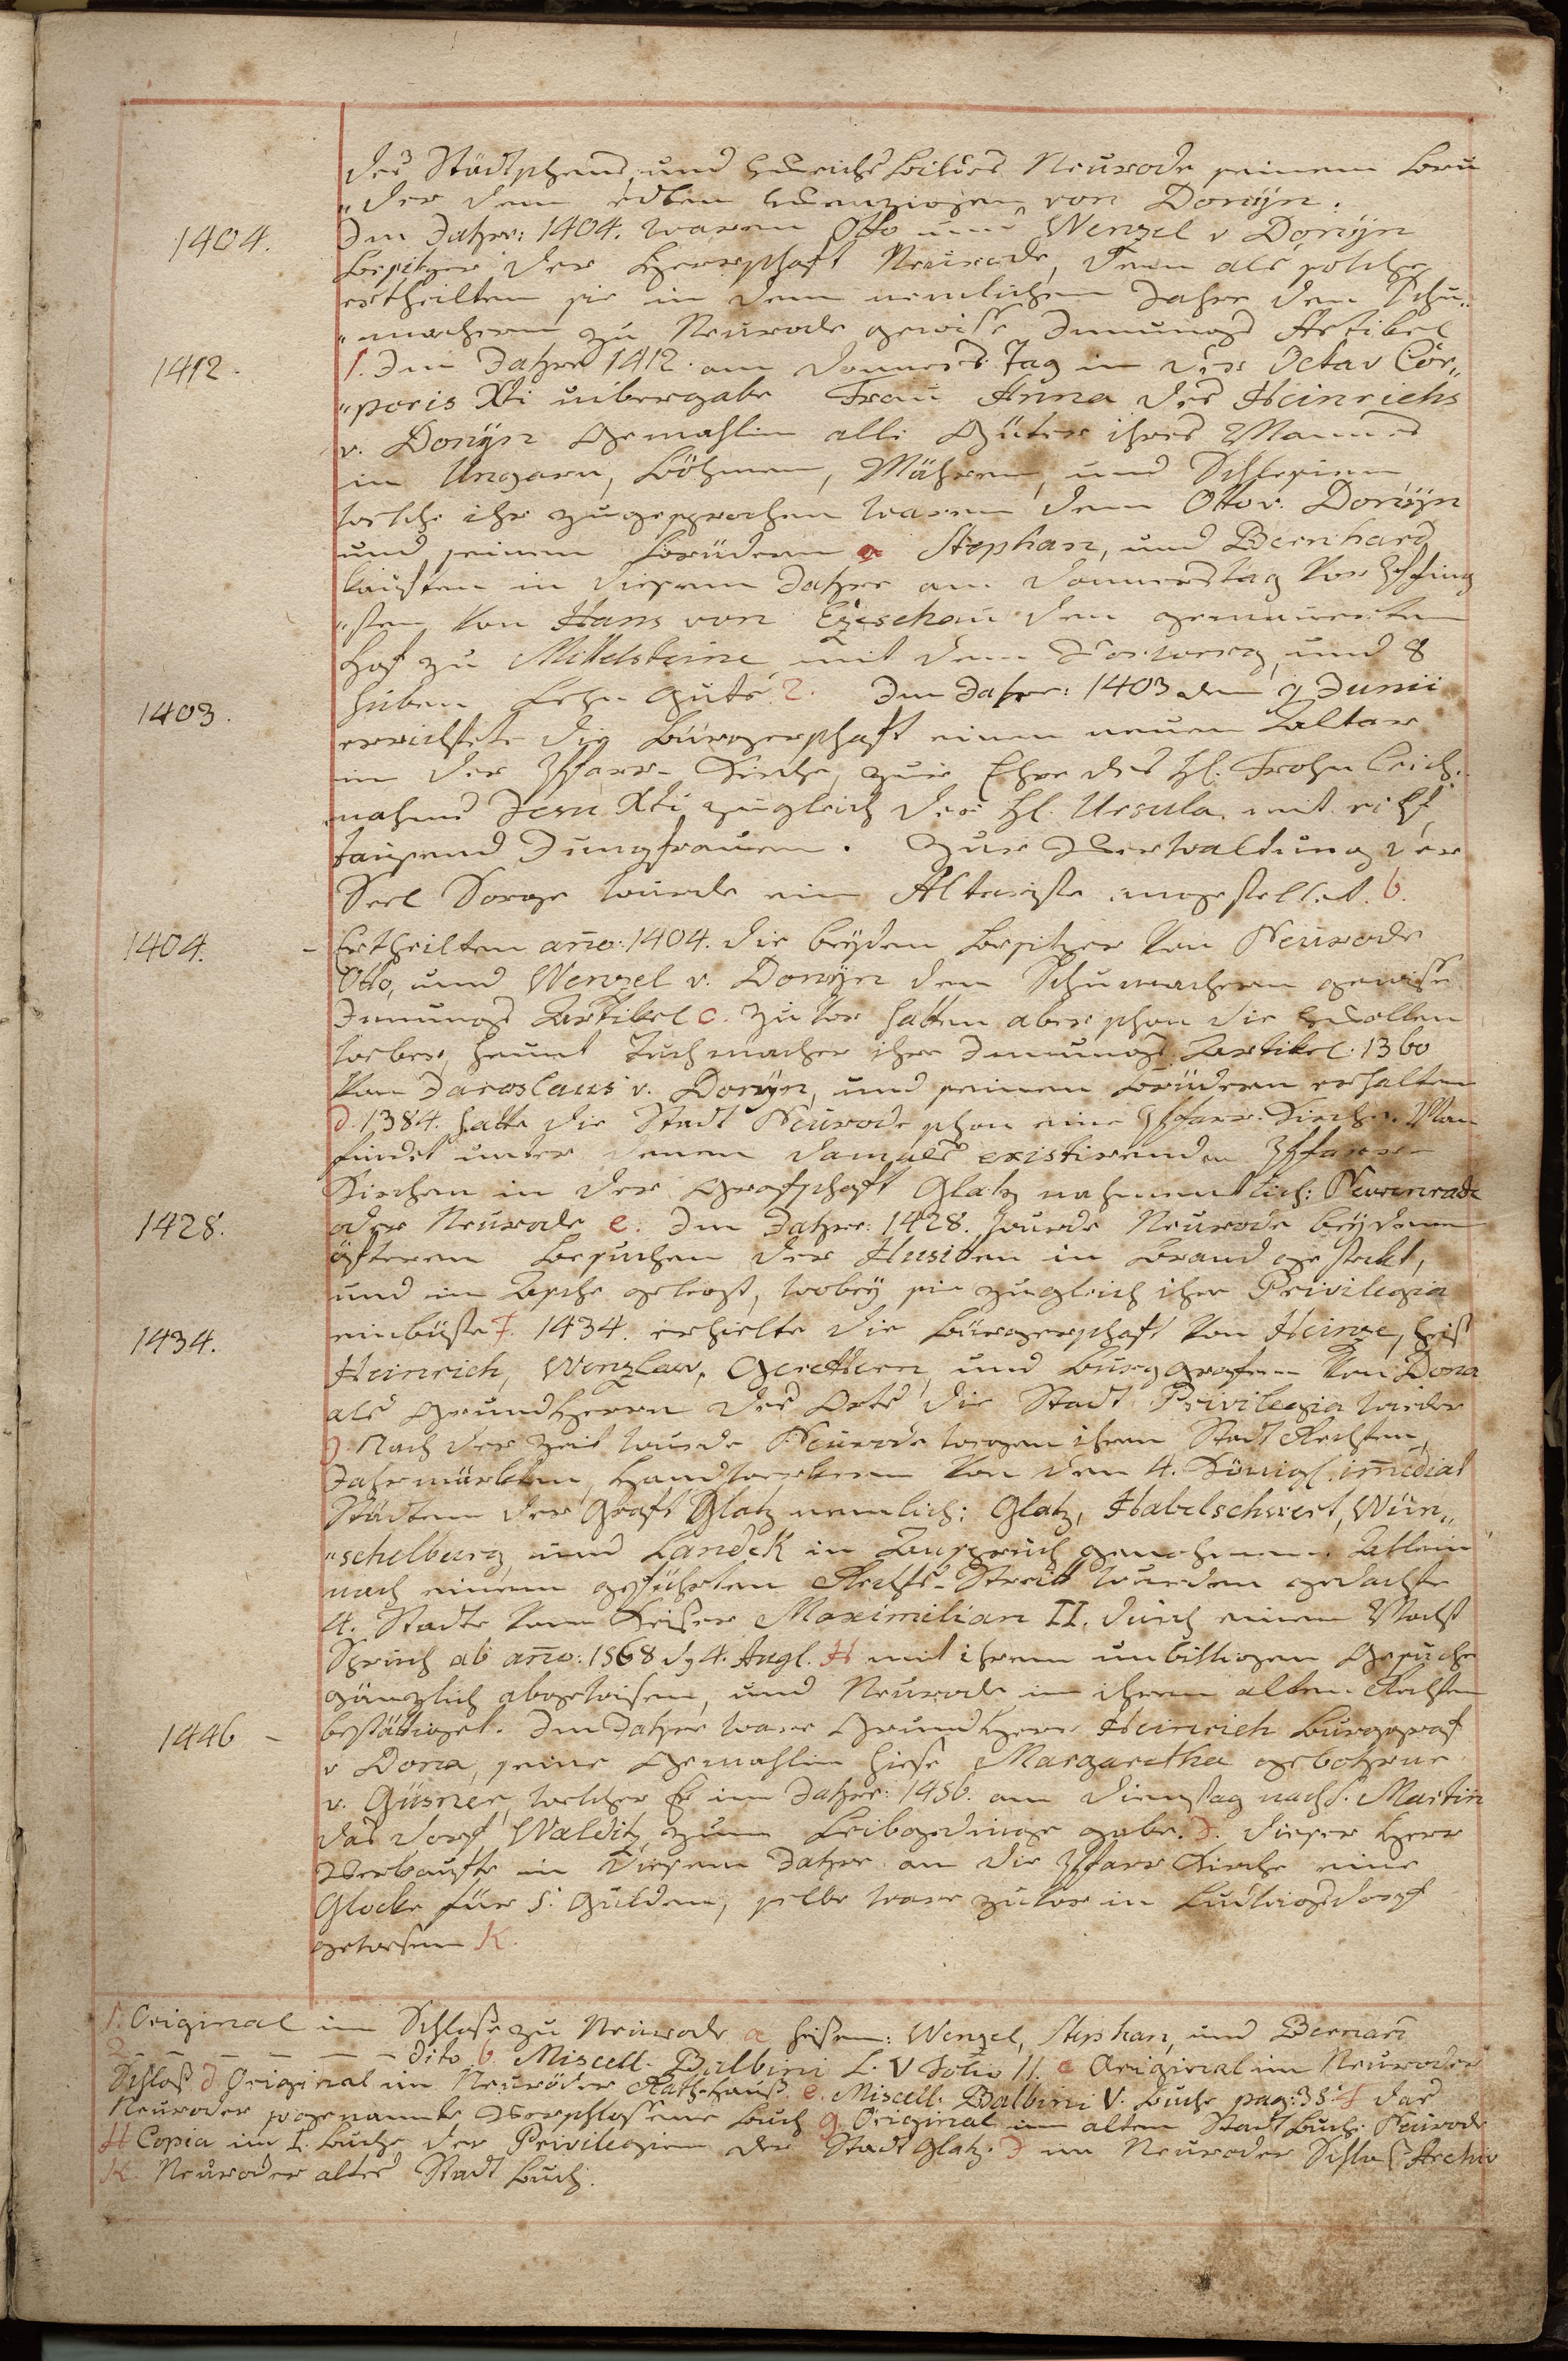 des Städtchens, und Weichsbildes Neurode seinem bru
„der dem edlen Wenziogen von Donÿn.
1404. Im Jahre: 1404. waren Otto und Wenzel v Donÿn
besitzer der Herrschaft Neurode, denn als solche
ertheilten sie in dem nemlichen Jahre den Schu„
„machern zu Neurode gewisse Innungs Artikel
1412. 1. Im Jahre 1412. am Donners-Tag in der Octav Cor„
„poris Xti uibergabe Frau Anna des Heinrichs
v. Donÿn Gemahlin alle Güter ihres Mannes
in Ungarn, Böhmen, Mähren, und Schlesien
welche ihr zugesprochen waren dem Otto v. Donÿn
und seinen brüdern a Stephan, und Bernhard
kauften in diesem Jahre am Donnerstag vor Pfing
„sten von Hans von Czeschau den gemauerten
Hof zu Mittelsteine mit dem Vorwerg, und 8
1403. huben Lehn Guts 2. Im Jahre: 1403 den 9 Junii
errichtete die Bürgerschaft einen neuen Altar
in der Pfarr-Kirche, zur Ehre des hl: Frohn Leich„
nahms Jesu Xti zugleich der hl. Ursula mit eilf
tausend Jungfrauen. Zur Verwaltung der
Seel Sorge wurde ein Altariste angestellet. b.
1404. – Ertheilten año: 1404. die beÿden besitzer von Neurode
Otto, und Wenzel v. Donÿn den Schumachern gewisse
Innungs Artikel c. zuvor hatten aber schon die Wollen
weber, heunt Tuchmacher ihre Innungs Artikel 1360
von Jaroslaus v. Donÿn, und seinen brüdern erhalten
d. 1384. hatte die Stadt Neurode schon eine Pfarr-Kirche. Man
findet unter denen damals existirenden Pfarr-
Kirchen in der Grafschaft Glatz nahmentlich: Newenrade
1428. oder Neurode e. Im Jahre: 1428. wurde Neurode beÿ denen
öfteren besuchen der Husiten in brand gestekt,
und in Asche gelegt, wobeÿ sie zugleich ihre Privilegia
1434. einbüste f. 1434. erhielte die Bürgerschaft von Heinze, heist
Heinrich, Wenzlav, Gerettern, und burggrafen von Dona
als GrundHerrn des Orts die Stadt Privilegia wieder
g. Nach der Zeit wurde Neurode wegen ihren Stadt Rechten,
Jahrmärkten, Handwerkern von den 4. Königl: im̃ediat
Städten der Grafs: Glatz nemlich: Glatz, Habelschwert, Wün„
„schelburg, und Landek in Anspruch genohmen. Allein
nach einem geführten Rechts-Streitt wurden gedachte
4. Stadte vom Keiser Maximilian II. durch einen Macht
Spruch ab año: 1568 dy 4. Augl. H mit ihrem unbilligen Gesuche
gänzlich abgewisen, und Neurode in ihren alten Rechten
1446 – bestättiget. Im Jahre ware GrundHerr Heinrich burggraf
v Dona, seine Gemahlin hiese Margaretha gebohrne
v. Güsner, welcher Er im Jahre: 1456. am Dienstag nach S. Martin
das Dorf Walditz zum Leibgedinge gabe. J. dieser Herr
Verkaufte in diesem Jahre an die Pfarr Kirche eine
Glocke für 5. Gulden, selbe ware zuvor in Ludwigsdorf
gewesen K.
1. Original im Schlosse zu Neurode a heisen: Wenzel, Stephan, und Bernarñ
2. — — — — — dito b. Miscell. Balbini L. V Folio 11. c Original im Neuroder
Schloß d Original im Neuröder Rathhauß. e. Miscell: Balbini V. buche pag: 35. f das
Neuroder sogenannte Verschlossene buch g Original im alten Stadt buch: Neurode
H Copia im I. buche der Privilegien der Stadt Glatz. J im Neuroder Schloß Archiv
K. Neuroder altes Stadt buch.